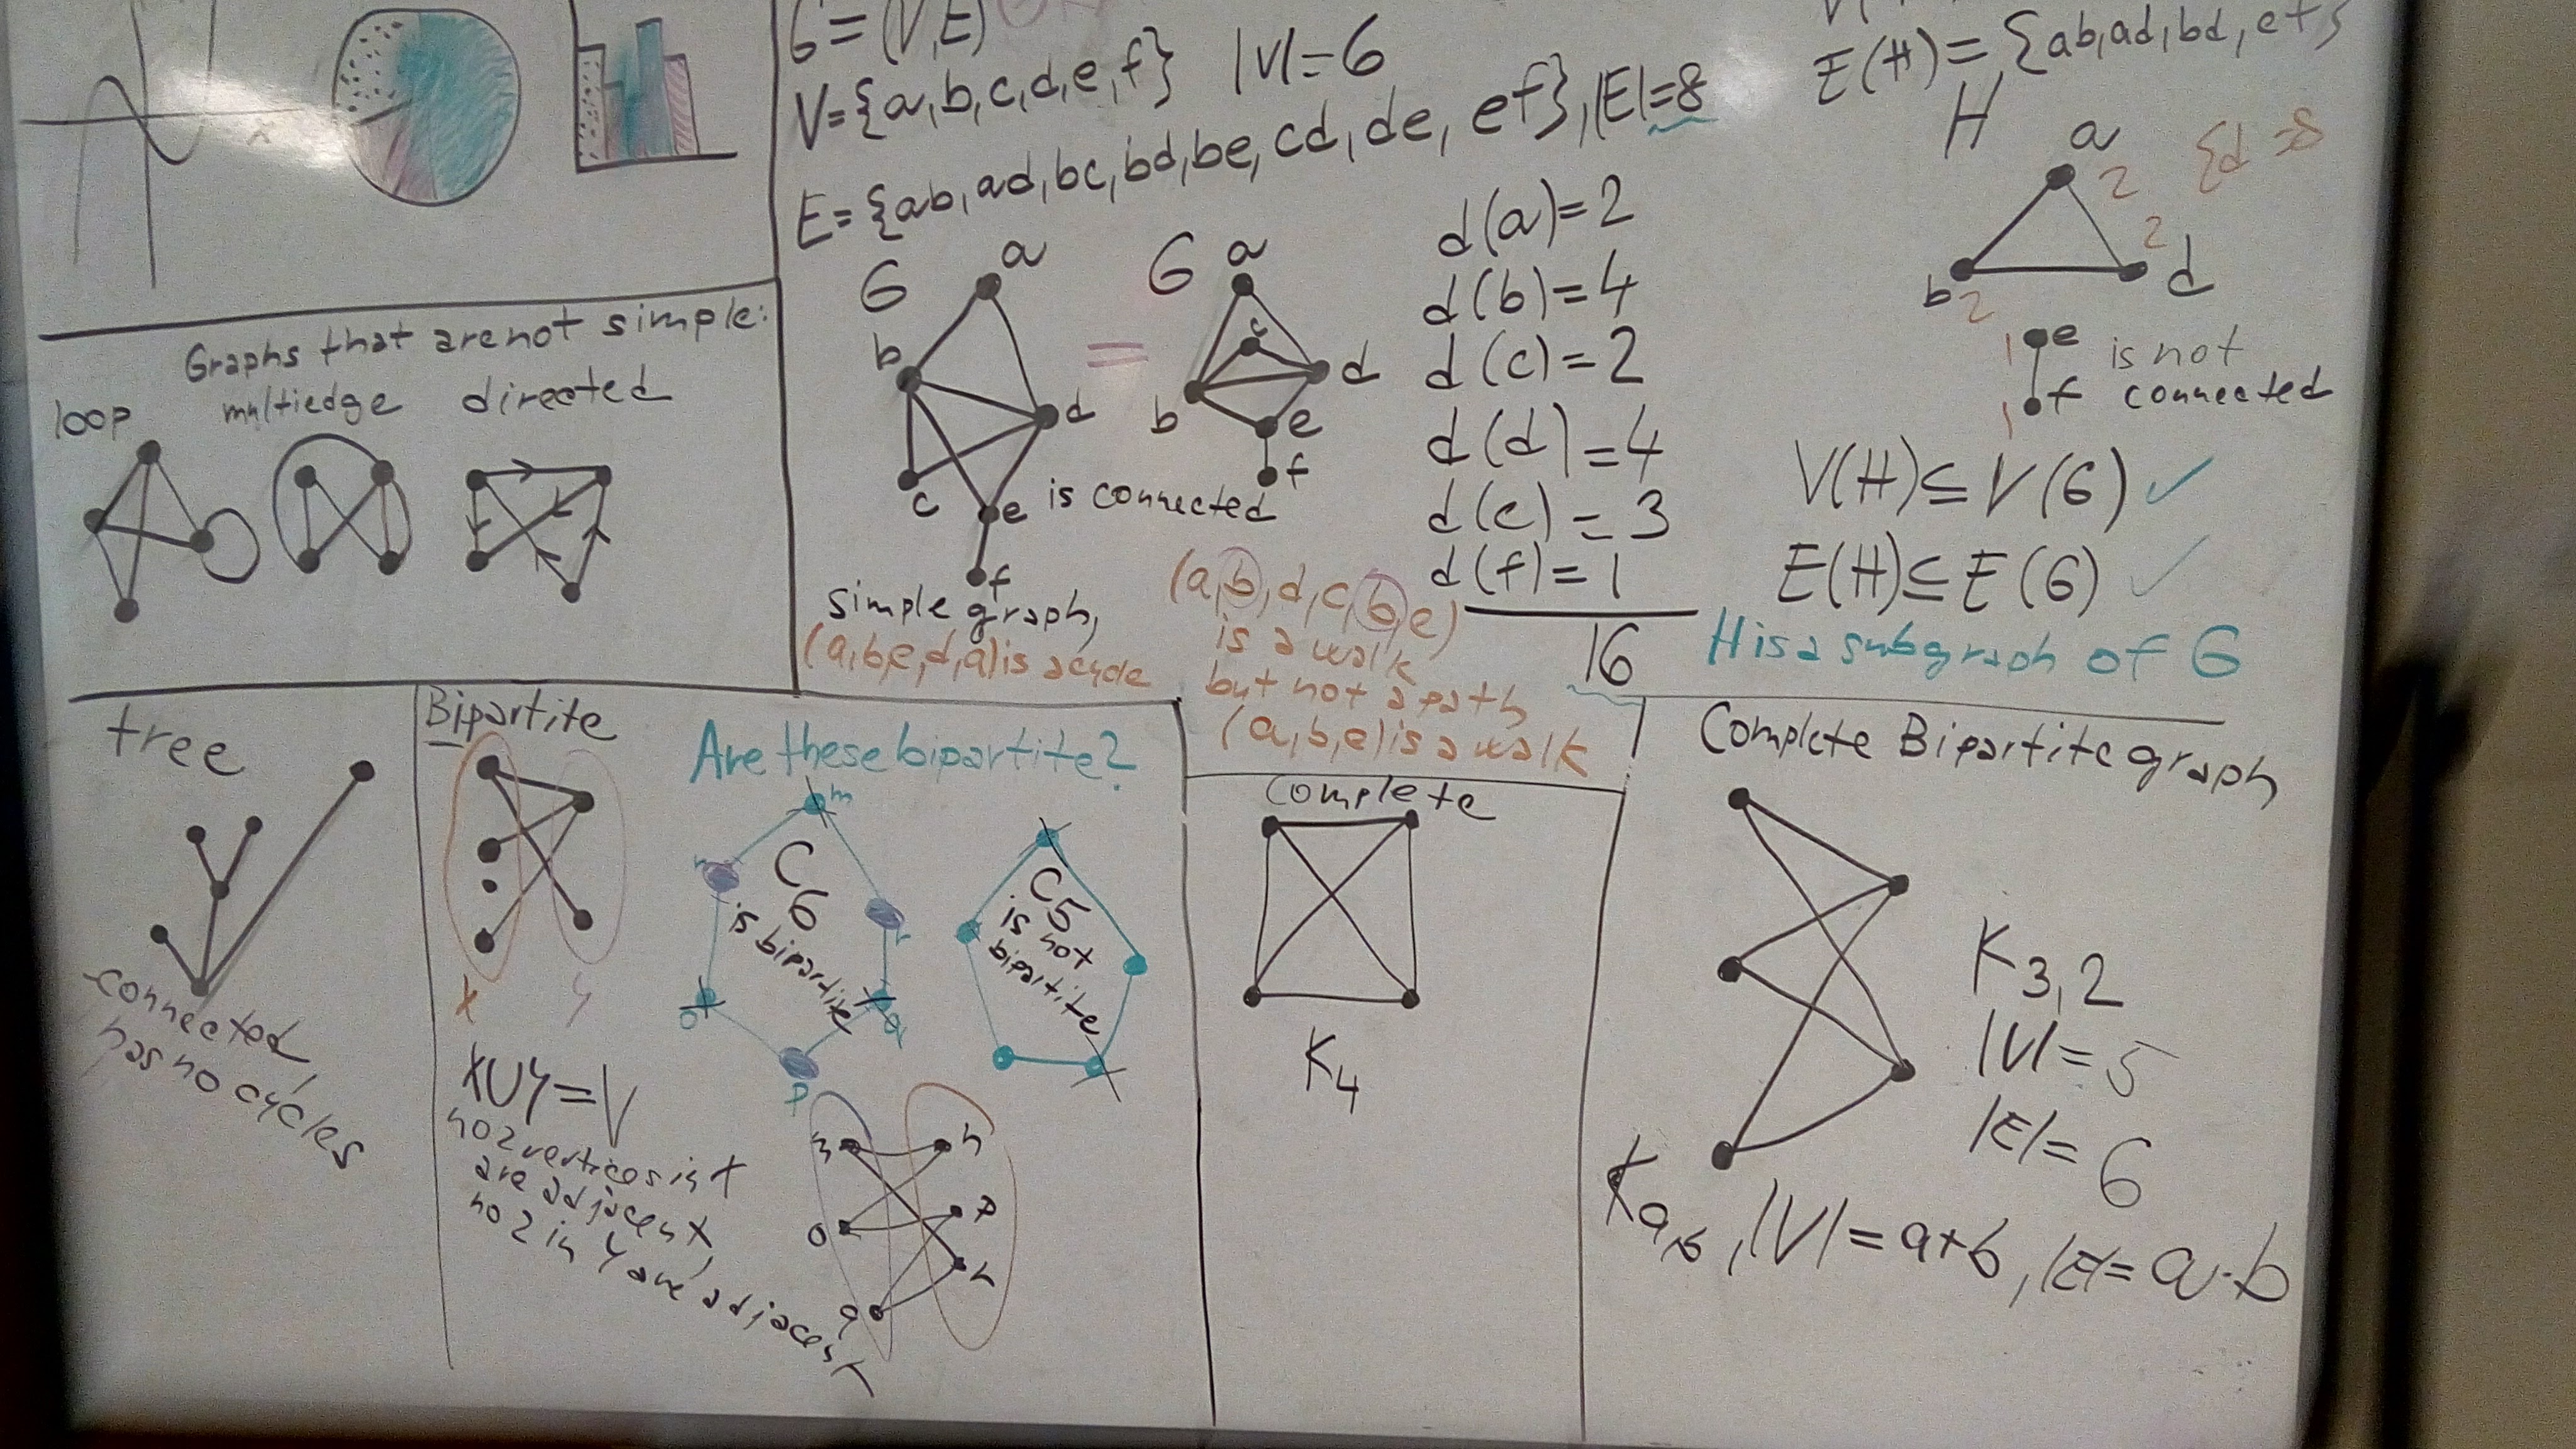 G=(V,E)
V={a,b,c,d,e,f} |V|=6
E={ab,ad,bc,bd,be,cd,de,ef},|E|=8
G
a
b
d
c
e
f
is connected
simple graph,
(a,b,e,d,a) is a cycle
=
G
a
c
b
d
e
f
d(a)=2
d(b)=4
d(c)=2
d(d)=4
d(e)=3
d(f)=1
16
(a,b,d,c,b,e)
is a walk
but not a path
(a,b,e) is a walk
E(H)={ab,ad,bd,ef}
H
a
2
b
2
d
2
1
e
1
f
is not
connected
V(H)⊆V(G) ✓
E(H)⊆E(G) ✓
H is a subgraph of G
Graphs that are not simple:
loop multiedge directed
tree
connected,
has no cycles
Bipartite
X Y
XUY=V
no 2 vertices in X
are adjacent,
no 2 in Y are adjacent
Are these bipartite?
m
n
r
o
q
p
C6
is bipartite
C5
is not
bipartite
n
o
p
q
r
Complete
K4
Complete Bipartite graph
K3,2
|V|=5
|E|=6
Ka,b, |V|=a+b, |E|=a·b